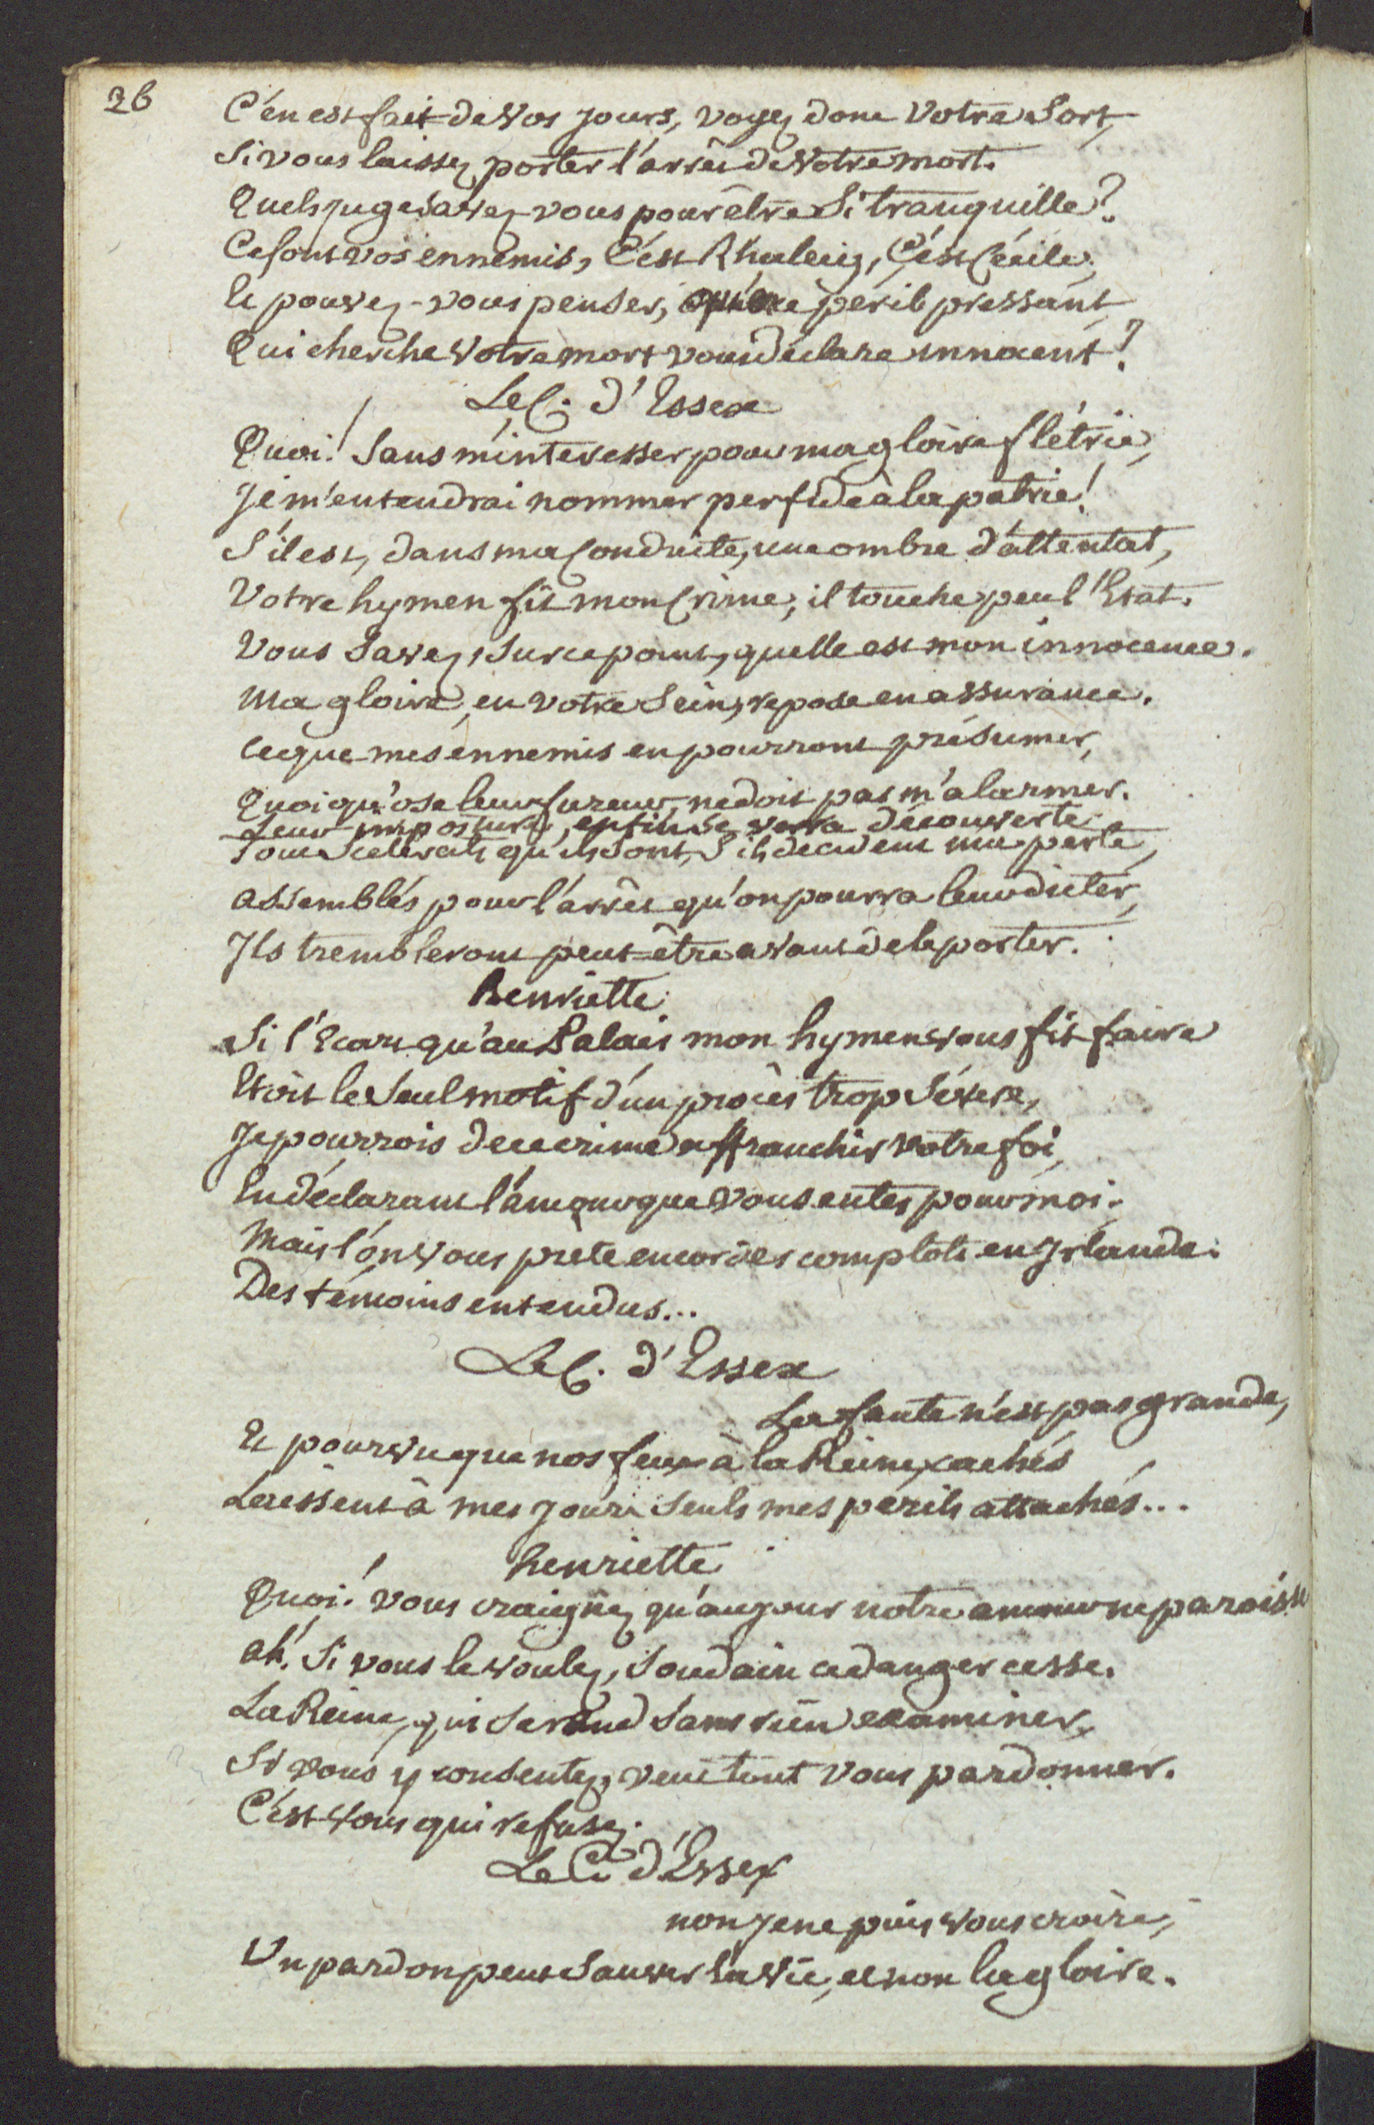 26
C'en est fait de vos jours, voyez donc votre Sort,
Si vous laissez porter l'arrêt de votre mort.
Quels juges avez-vous pour être Si tranquille?
Ce sont vos ennemis, C'est Rhaleig, C'est Cécile,
Et pouvez-vous penser, péril pressant
Qui cherche votre mort vous déclare innocent?
Le C. d'Essex
Quoi! Sans m'interesser pour ma gloire flétrie,
Je m'entendrai nommer perfide à la patrie!
S'il est, dans ma Conduite, une ombre d'attentat,
Votre hymen fit mon Crime; il touche peu l'Etat.
Vous Savez, Sur ce point, quelle est mon innocence.
Ma gloire, en votre Sein, repose en assurance.
Ce que mes ennemis en pourront présumer,
Quoiqu'ose leur fureur, ne doit pas m'alarmer.
Leur imposture, enfin se verra découverte
Tous Scelerats qu'ils Sont, S'ils decident ma perte,
assemblés pour l'arrêt qu'on pourra leur dicter,
Ils trembleront peut-être avant de le porter.
henriette
Si l'Ecart qu'au Palais mon hymen vous fit faire
Etoit le Seul motif d'un procès trop Sévere,
Je pourrois de ce crime affranchir votre foi,
En déclarant l'amour que vous entes pour moi.
Mais l'on vous prête encor des complots en Irlande.
Des témoins entendus...
Le C. d'Essex
La faute n'est pas grande,
Et pourvu que nos feux à la Reine cachés
Laissent à mes jours Seuls mes périls attachés...
henriette
Quoi! vous craignez qu'au jour notre amour ne paroisse
ah! Si vous le voulez, Soudain ce danger cesse.
La Reine, qui Se rend Sans rien examiner,
Si vous y consentez, veut tout vous pardonner.
C'est vous qui refusez.
Le C. d'Essex
non je ne puis vous croire,
Un pardon peut Sauver la vie, et non la gloire.